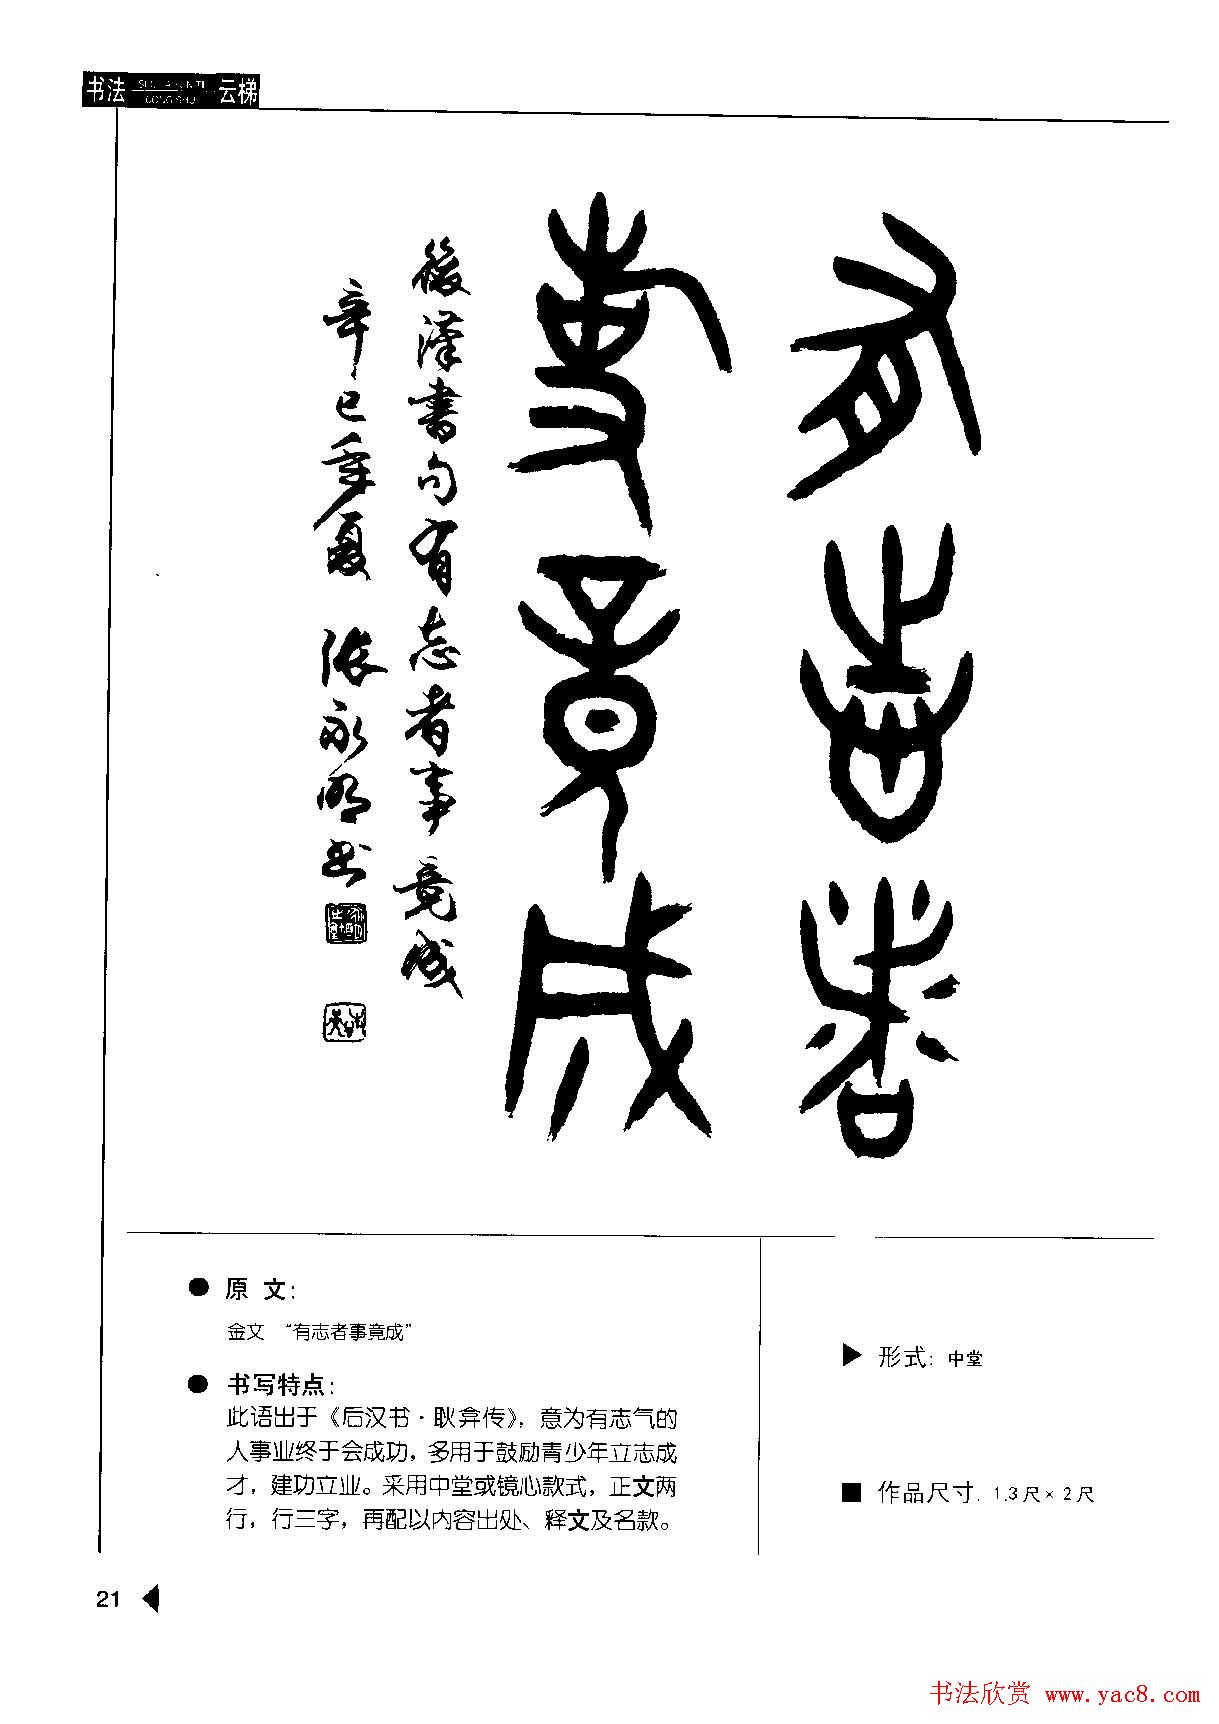 书法 云梯
有志者
事竟成
後漢書句有志者事竟成
辛巳年夏 张永明书
● 原 文：
金文 “有志者事竟成”
● 书写特点：
此语出于《后汉书·耿弇传》，意为有志气的
人事业终于会成功，多用于鼓励青少年立志成
才，建功立业。采用中堂或镜心款式，正文两
行，行三字，再配以内容出处、释文及名款。
▶ 形式：中堂
■ 作品尺寸. 1.3尺×2尺
21 ◀
书法欣赏 www.yac8.com